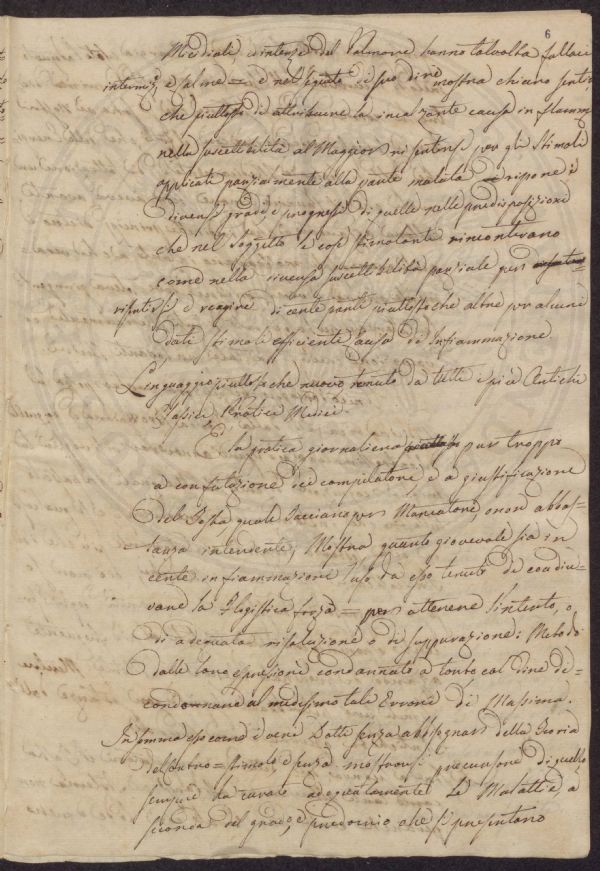 6
Micidiali, ed intense del Polmone hanno talvolta fallaci
intermiss. e calme = e nel seguito di suo dire mostra chiaro
che piuttosto di attribuire la incalzante causa in fiamm
nella suscettibilità al Maggior risentirsi per gli Stimoli
applicati parzialmente alla parte malata ripone i
diversi gradi, e progressi di quelle nelle predisposizioni
che nel Soggetto le cose stimolante rincontrano
come nella diversa suscettibilità parziale per
risentirsi e reagire di certe parti piuttosto che altre per alcuni
dati stimoli efficiente causa di Infiammazione.
Linguaggio piuttosto che nuovo tenuto da tutti i più Antichi
Classici Pratici Medici.
E la pratica giornaliera pur troppo
a confutazione del compilatore, e a giustificazione
del quale per non abbas=
tanza intendente, Mostra quanto giovevole sia in
certe infiammazioni l'uso da esso tenuto di coadiu=
vare la Flogistica forza = per ottenere l'intento, o
di adequata risoluzione o di suppurazione: Metodo
dalle loro espressioni condannato a torto col dire di=
condannare al medesimo tale Errore di Massima.
Insomma esso come i veri Dotti senza abbisognare della Teoria
del Contro=stimolo e senza mostrarsi precursore di quello
sempre da curare adequatamente le Malattie, a
seconda del grado, e predominio che si presentano